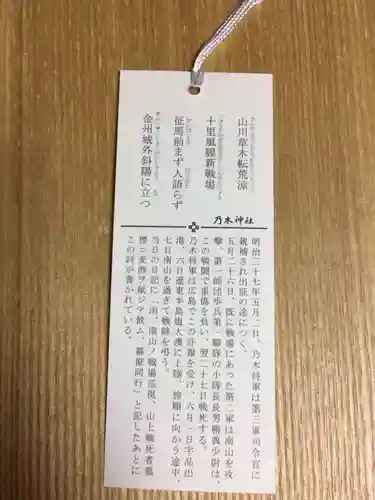 山川草木転荒涼
十里風腥新戦場
征馬前まず人語らず
金州城外斜陽に立つ
乃木神社
明治三十七年五月二日、乃木将軍は第三軍司令官に
親補され出征の途につく。
五月二十六日、既に戦場にあった第二軍は南山を攻
撃、第一師団歩兵第一聯隊の小隊長長男勝典少尉は、
この戦闘で重傷を負い、翌二十七日戦死する。
乃木将軍は広島でこの訃報を受け、六月一日宇品出
港、六日遼東半島塩大澳に上陸、旅順に向かう途中、
七日南山を過ぎて戦跡を弔う。
当日の日記に「雨、南山ノ戦場巡視、山上戦死者墓
標ニ麦酒ヲ献ジテ飲ム、幕僚同行」と記したあとに
この詩が書かれている。